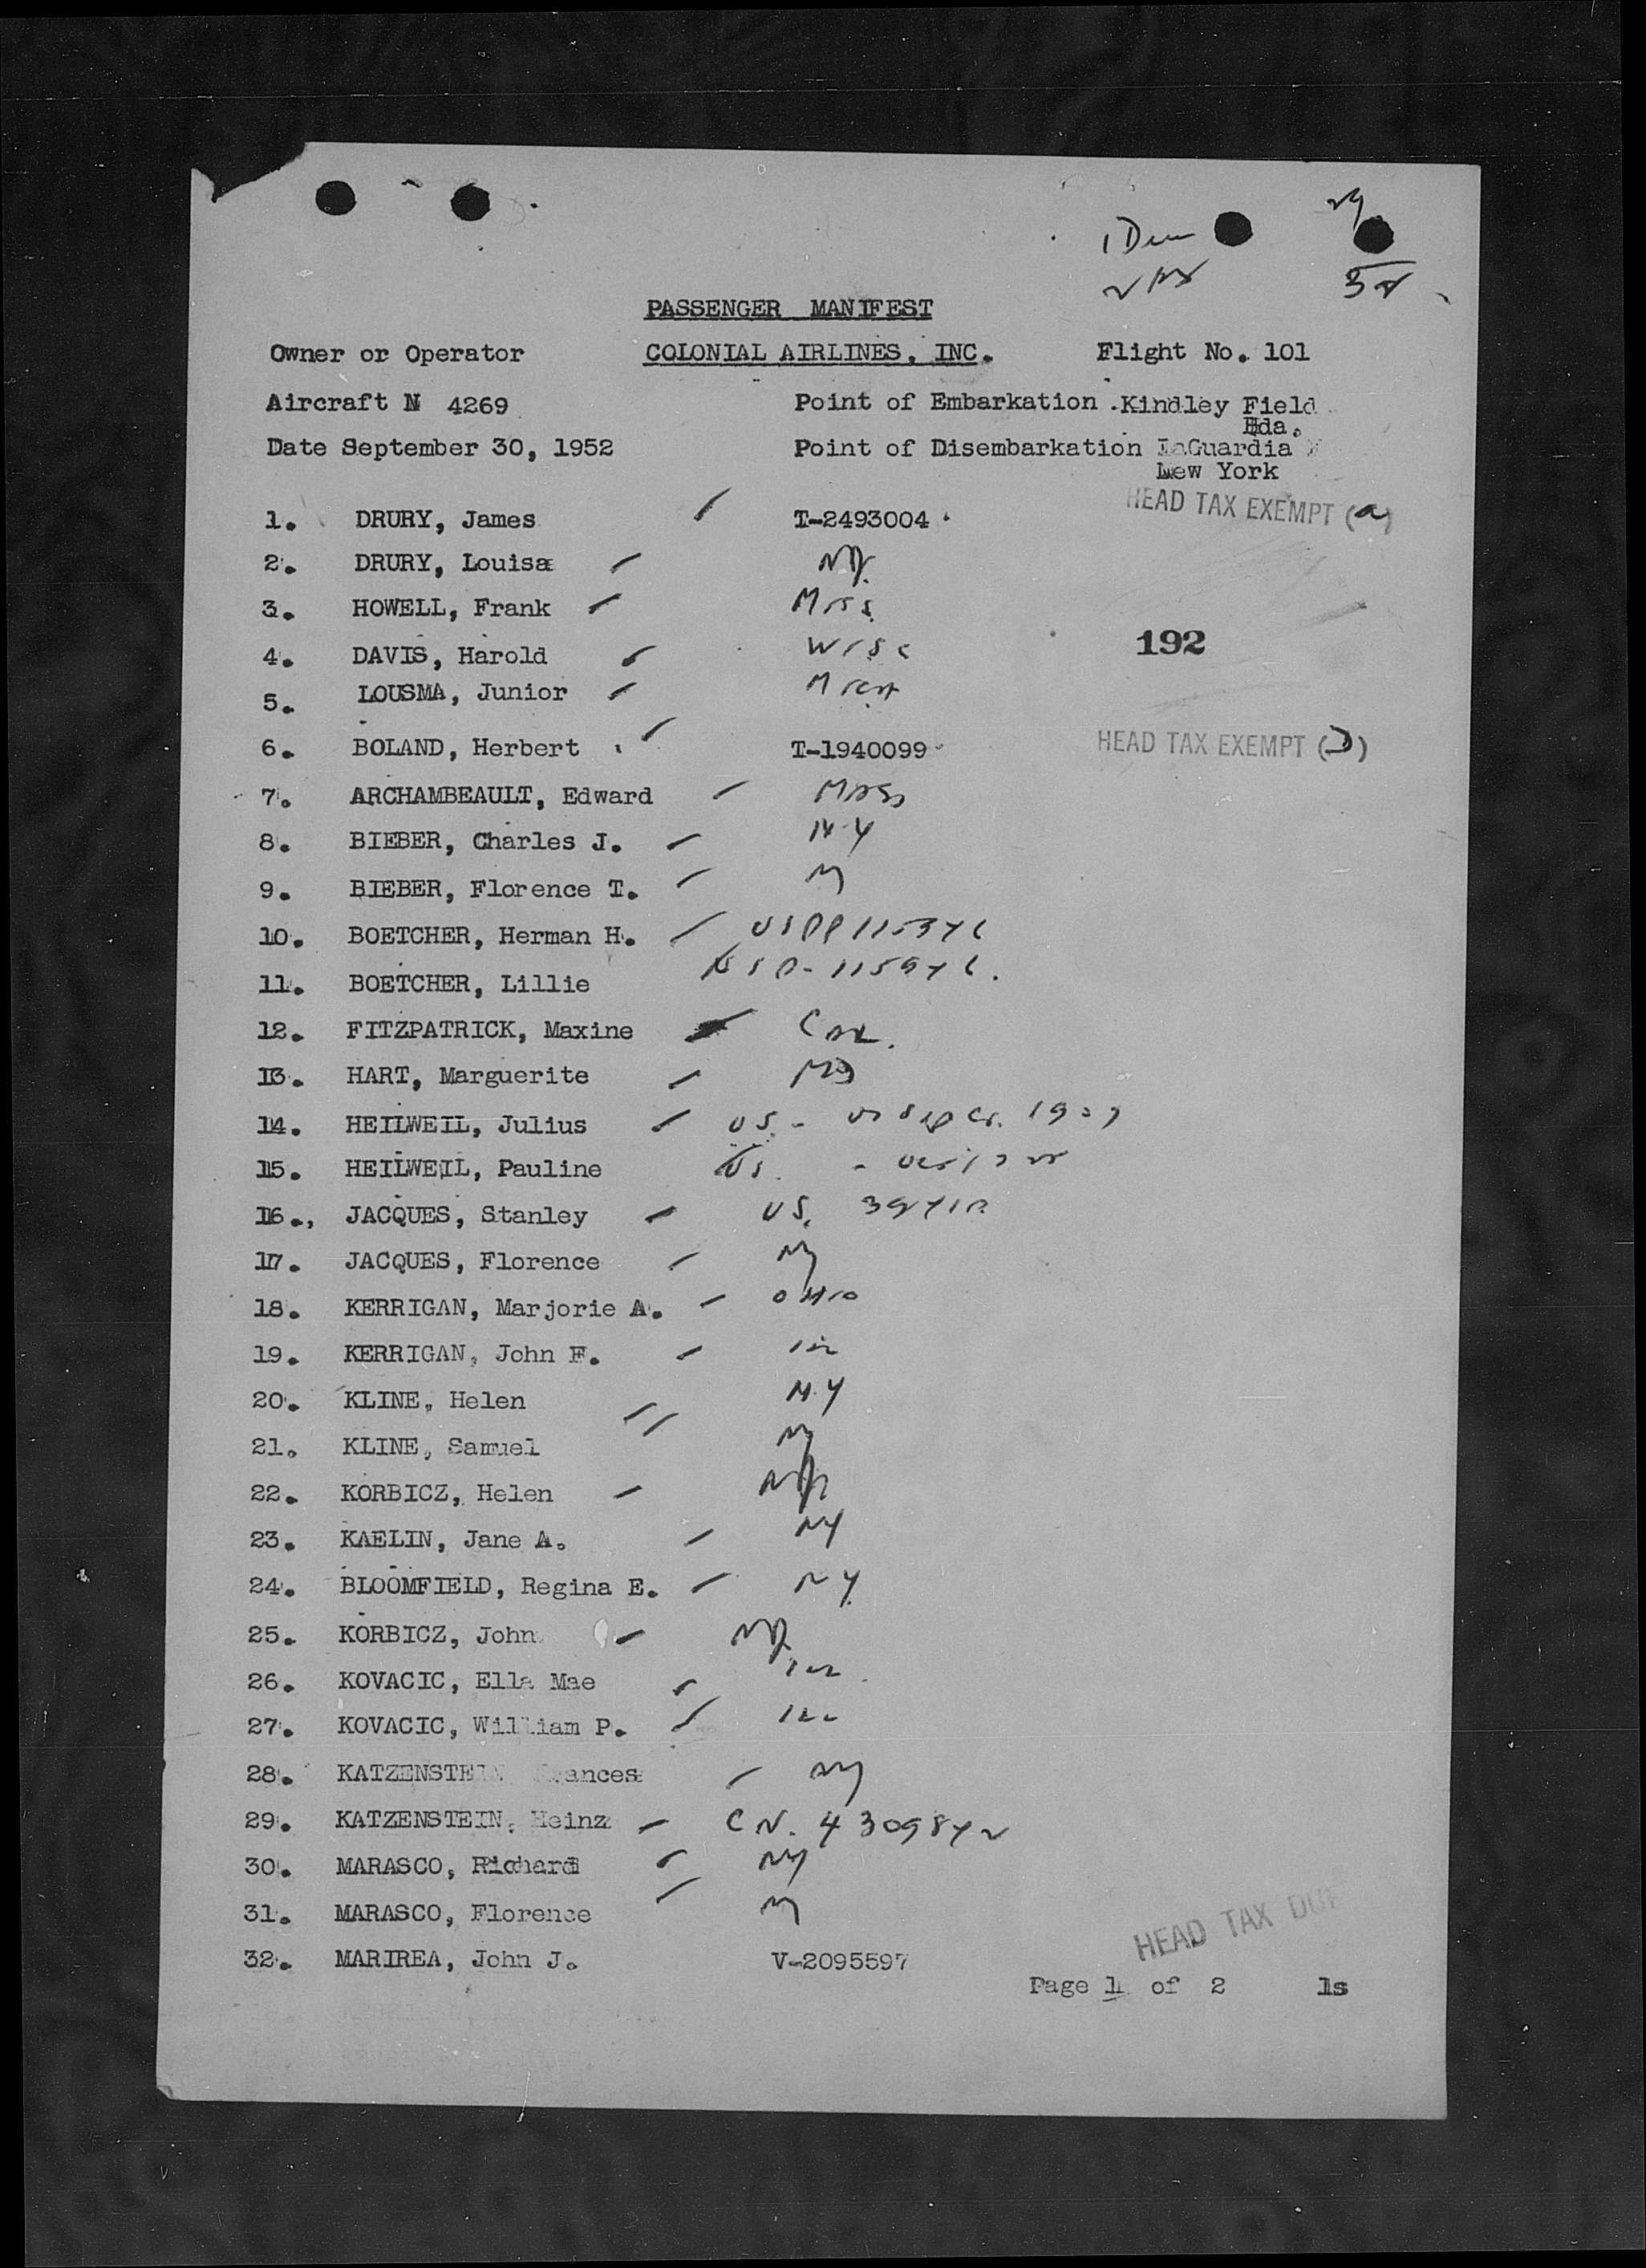 29
1 Dem
32
PASSENGER MANIFEST
Owner or Operator COLONIAL AIRLINES, INC. Flight No. 101
Aircraft N 4269 Point of Embarkation Kindley Field
Bda.
Date September 30, 1952 Point of Disembarkation LaGuardia
New York
HEAD TAX EXEMPT (a)
1. DRURY, James T-2493004
2. DRURY, Louisa NY.
3. HOWELL, Frank Miss.
192
4. DAVIS, Harold Wisc
5. LOUSMA, Junior Mich
6. BOLAND, Herbert T-1940099 HEAD TAX EXEMPT (D)
7. ARCHAMBEAULT, Edward Mass
8. BIEBER, Charles J. N.Y
9. BIEBER, Florence T. NY
10. BOETCHER, Herman H.
11. BOETCHER, Lillie
12. FITZPATRICK, Maxine
13. HART, Marguerite
14. HEILWEIL, Julius US.
15. HEILWEIL, Pauline US.
16., JACQUES, Stanley US.
17. JACQUES, Florence NY
18. KERRIGAN, Marjorie A. OHIO
19. KERRIGAN, John F.
20. KLINE, Helen N.Y
21. KLINE, Samuel NY
22. KORBICZ, Helen
23. KAELIN, Jane A. NY
24. BLOOMFIELD, Regina E. NY.
25. KORBICZ, John
26. KOVACIC, Ella Mae
27. KOVACIC, William P.
28. KATZENSTEIN, Frances NY
29. KATZENSTEIN, Heinz C N. 4309842
30. MARASCO, Richard NY
31. MARASCO, Florence NY
HEAD TAX DUE
32. MARIREA, John J. V-2095597
Page 1 of 2 ls